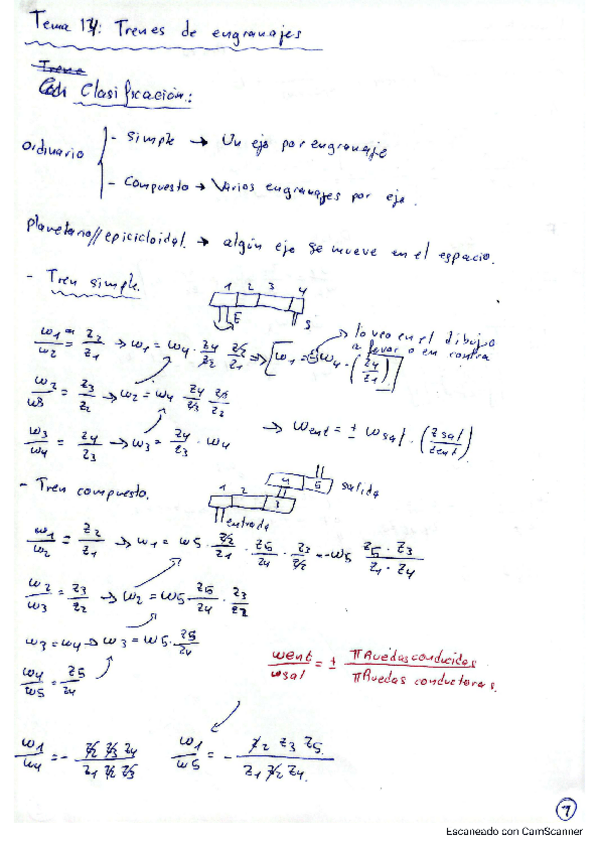 Tema 14: Trenes de engranajes
Clasificación:
Ordinario
- Simple → Un eje por engranaje
- Compuesto → Varios engranajes por eje.
Planetario//epicicloidal → algún eje se mueve en el espacio.
- Tren simple.
1 2 3 4
E S
lo veo en el dibujo
a favor o en contra
ω1/ω2 = Z2/Z1 → ω1 = ω4 · Z4/Z2 Z2/Z1 ⇒ ω1 = ± ω4 · (Z4/Z1)
ω2/ω3 = Z3/Z2 → ω2 = ω4 Z4/Z3 Z3/Z2
ω3/ω4 = Z4/Z3 → ω3 = Z4/Z3 · ω4
→ ωent = ± ωsal · (Zsal/Zent)
- Tren compuesto.
1 2 3 4 5
salida
entrada
ω1/ω2 = Z2/Z1 → ω1 = ω5 · Z2/Z1 · Z5/Z4 · Z3/Z2 = -ω5 Z5 · Z3/Z1 · Z4
ω2/ω3 = Z3/Z2 → ω2 = ω5 Z5/Z4 · Z3/Z2
ω3 = ω4 → ω3 = ω5 · Z5/Z4
ω4/ω5 = Z5/Z4
ωent/ωsal = ± π Ruedas conducidas/π Ruedas conductoras.
ω1/ω4 = - Z2 Z3 Z4/Z1 Z2 Z3
ω1/ω5 = - Z2 Z3 Z5/Z1 Z2 Z4.
1
Escaneado con CamScanner